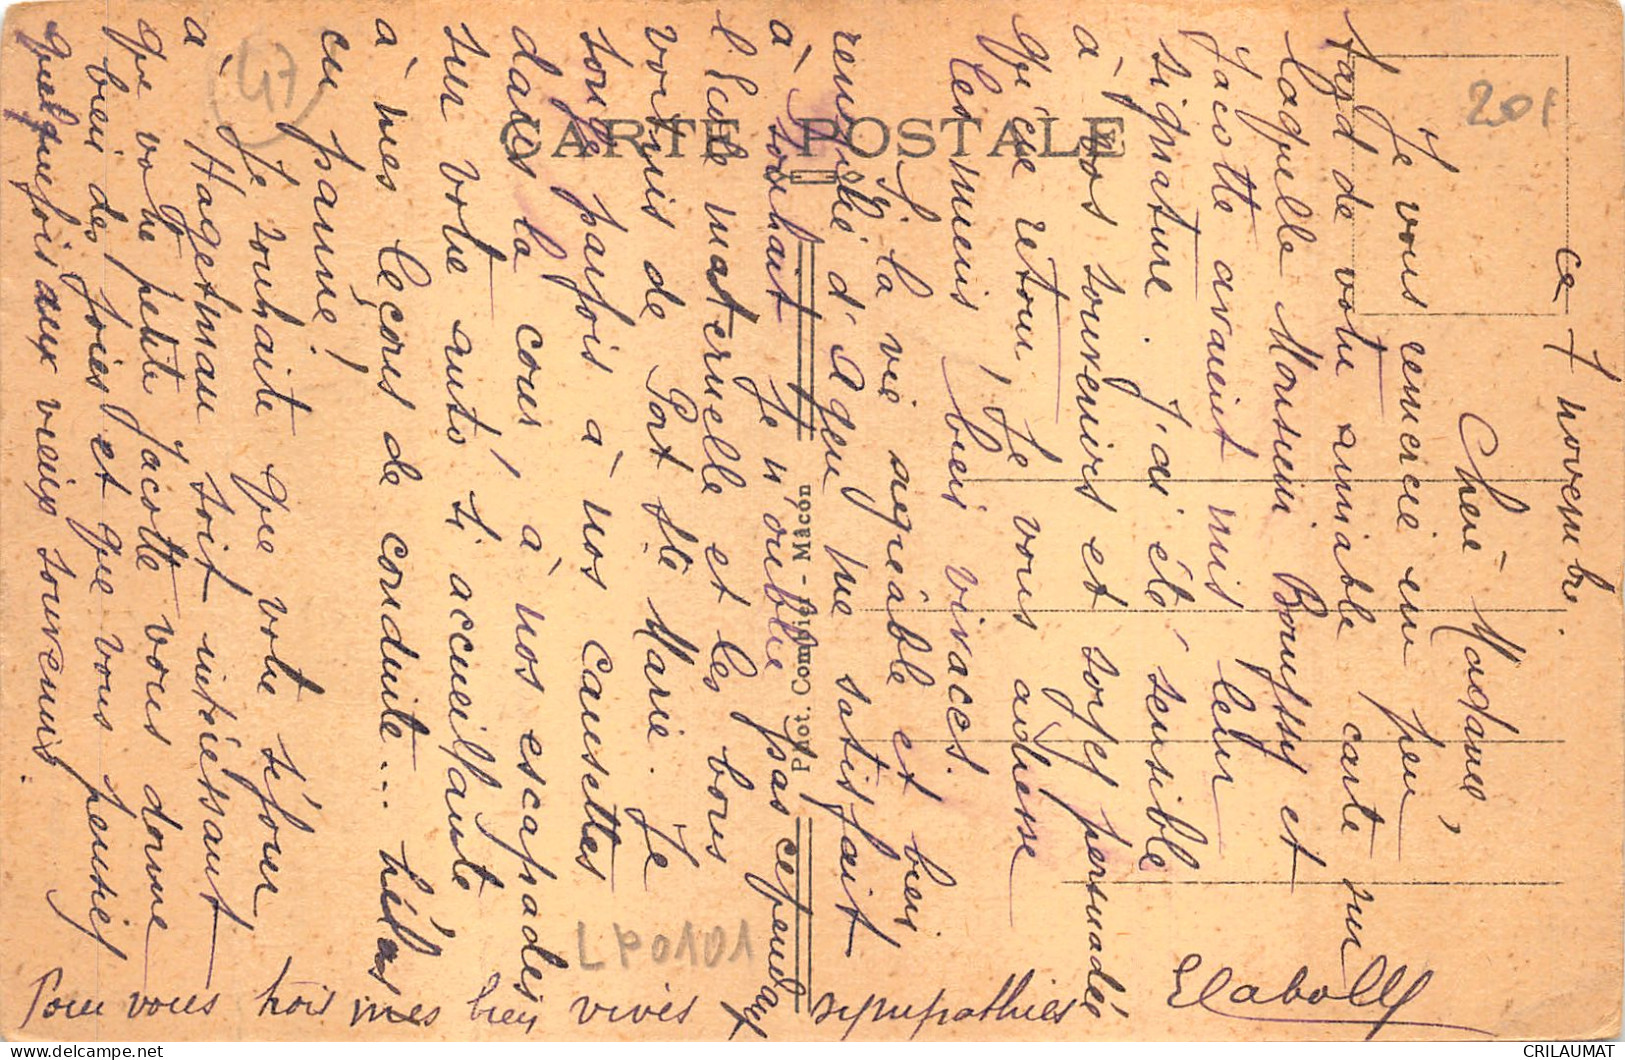 ce 7 novembre.
Chère Madame,
Je vous remercie un peu
tard de votre aimable carte sur
laquelle Monsieur Boussy et
Jacotte avaient mis leur
signature. J'ai été sensible
à vos souvenirs et soyez persuadée
qu'en retour, je vous adresse
les miens, bien vivaces.
Ici la vie agréable et bien
remplie d'Agen me satisfait
à souhait. Je n'oublie pas cependant
l'Ecole maternelle et les bons
voisins de Port Ste Marie. Je
songe parfois à nos causettes
dans la cour, à nos escapades
sur votre auto si accueillante
à mes leçons de conduite... hélas
en panne!
Je souhaite que votre séjour
à Hagetmau soit intéressant
que votre petite Jacotte vous donne
bien des joies et que vous pensiez
quelquefois aux vieux souvenirs.
Pour vous trois mes bien vives sympathies
ELabolly
CARTE POSTALE
Phot. Combier - Macon
47
20F
LP0101
CRILAUMAT